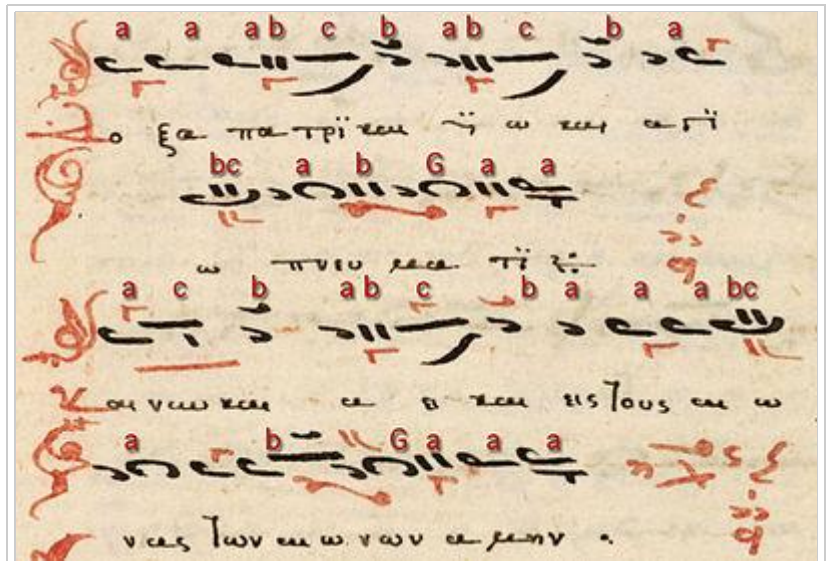 a a a b c b a b c b a
Δο ξα πα τρϊ και ϋ ω και α γϊ
bc a b G a a
ω πνευ μα τϊ
a c b a b c b a a a bc
Και νυν και α ει και εις Τους αι ω
a b G a a a
νας Των αι ω νων α μην .